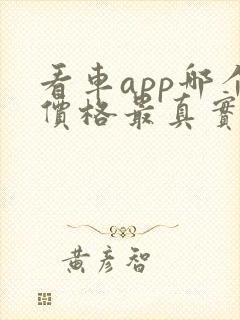 看車app哪个
價格最真實
黃彥智